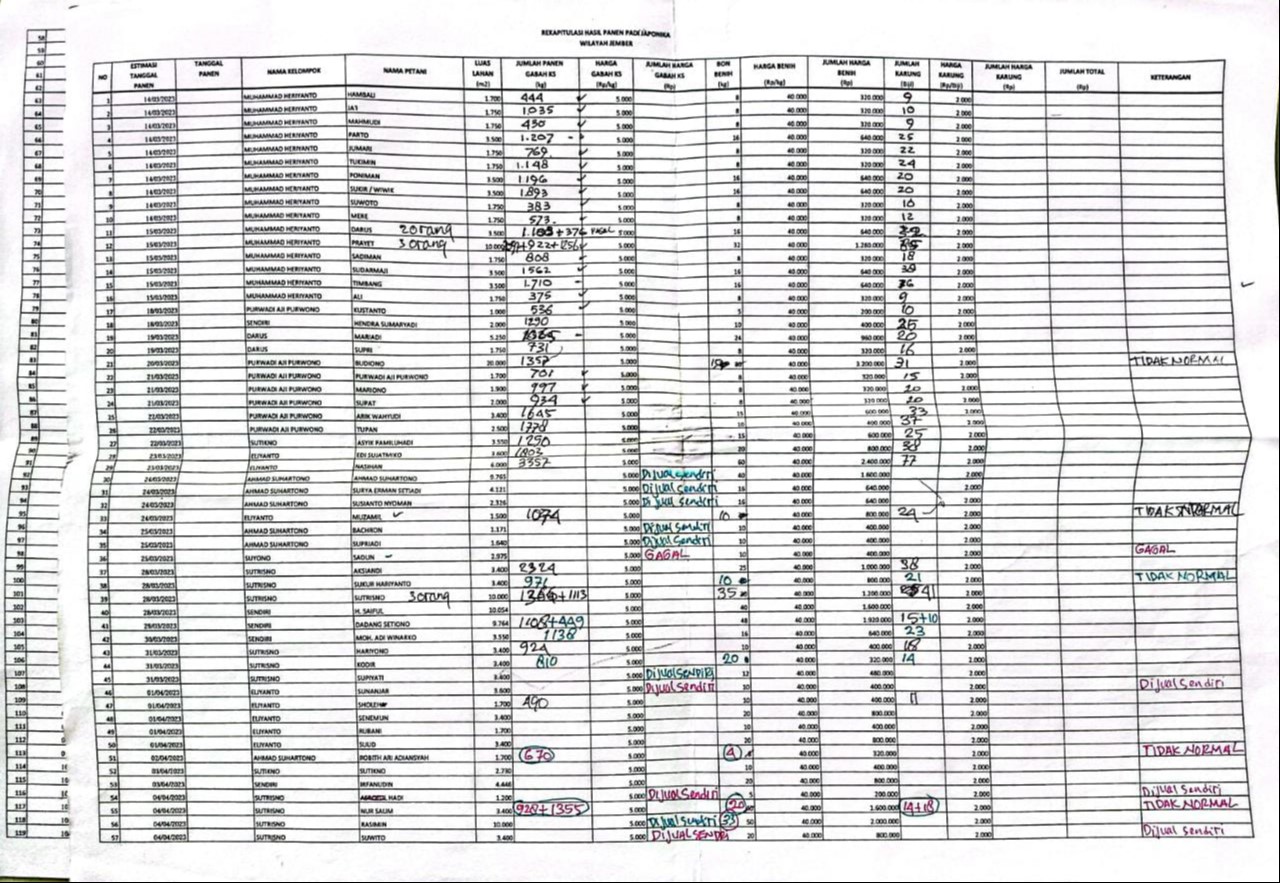 REKAPITULASI HASIL PANEN PADI JAPONIKA
WILAYAH JEMBER
NO ESTIMASI TANGGAL PANEN TANGGAL PANEN NAMA KELOMPOK NAMA PETANI LUAS LAHAN (m2) JUMLAH PANEN GABAH KS (kg) HARGA GABAH KS (Rp/kg) JUMLAH HARGA GABAH KS (Rp) BON BENIH (kg) HARGA BENIH (Rp/kg) JUMLAH HARGA BENIH (Rp) JUMLAH KARUNG (Biji) HARGA KARUNG (Rp/Biji) JUMLAH HARGA KARUNG (Rp) JUMLAH TOTAL (Rp) KETERANGAN
1 14/03/2023 MUHAMMAD HERIYANTO HAMBALI 1.700 444 ✓ 5.000 8 40.000 320.000 9 2.000
2 14/03/2023 MUHAMMAD HERIYANTO 1.750 1.035 ✓ 5.000 8 40.000 320.000 10 2.000
3 14/03/2023 MUHAMMAD HERIYANTO MAHMUDI 1.750 430 ✓ 5.000 8 40.000 320.000 9 2.000
4 14/03/2023 MUHAMMAD HERIYANTO PARTO 3.500 1.207 - 5.000 16 40.000 640.000 25 2.000
5 14/03/2023 MUHAMMAD HERIYANTO JUMARI 1.750 769 ✓ 5.000 8 40.000 320.000 22 2.000
6 14/03/2023 MUHAMMAD HERIYANTO TUKIMIN 1.750 1.148 ✓ 5.000 8 40.000 320.000 24 2.000
7 14/03/2023 MUHAMMAD HERIYANTO PONIMAN 3.500 1.196 ✓ 5.000 16 40.000 640.000 20 2.000
8 14/03/2023 MUHAMMAD HERIYANTO SUKIR / WIWIK 3.500 1.893 ✓ 5.000 16 40.000 640.000 20 2.000
9 14/03/2023 MUHAMMAD HERIYANTO SUWOTO 1.750 383 ✓ 5.000 8 40.000 320.000 10 2.000
10 14/03/2023 MUHAMMAD HERIYANTO MERE 1.750 573 ✓ 5.000 8 40.000 320.000 12 2.000
11 15/03/2023 MUHAMMAD HERIYANTO DARUS 2 orang 3.500 +376 5.000 16 40.000 640.000 2.000
12 15/03/2023 MUHAMMAD HERIYANTO PRAYET 3 orang 10.000 +922+1256 ✓ 5.000 32 40.000 1.280.000 2.000
13 15/03/2023 MUHAMMAD HERIYANTO SADIMAN 1.750 808 ✓ 5.000 8 40.000 320.000 18 2.000
14 15/03/2023 MUHAMMAD HERIYANTO SUDARMAJI 3.500 1562 ✓ 5.000 16 40.000 640.000 2.000
15 15/03/2023 MUHAMMAD HERIYANTO TIMBANG 3.500 1.710 - 5.000 16 40.000 640.000 36 2.000
16 15/03/2023 MUHAMMAD HERIYANTO ALI 1.750 375 ✓ 5.000 8 40.000 320.000 9 2.000
17 18/03/2023 PURWADI AJI PURWONO KUSTANTO 1.000 536 ✓ 5.000 5 40.000 200.000 10 2.000
18 18/03/2023 SENDIRI HENDRA SUMARYADI 2.000 1290 5.000 10 40.000 400.000 25 2.000
19 19/03/2023 DARUS MARIADI 5.250 - 5.000 24 40.000 960.000 20 2.000
20 19/03/2023 DARUS SUPRI 1.750 731 5.000 8 40.000 320.000 16 2.000
21 20/03/2023 PURWADI AJI PURWONO BUDIONO 20.000 1357 5.000 40.000 3.200.000 31 2.000 TIDAK NORMAL
22 21/03/2023 PURWADI AJI PURWONO PURWADI AJI PURWONO 1.700 701 ✓ 5.000 8 40.000 320.000 15 2.000
23 21/03/2023 PURWADI AJI PURWONO MARIONO 1.900 997 ✓ 5.000 8 40.000 320.000 20 2.000
24 21/03/2023 PURWADI AJI PURWONO SUPAT 2.000 934 ✓ 5.000 8 40.000 320.000 20 2.000
25 22/03/2023 PURWADI AJI PURWONO ARIK WAHYUDI 3.400 1645 5.000 15 40.000 600.000 33 2.000
26 22/03/2023 PURWADI AJI PURWONO TUPAN 2.500 1778 5.000 10 40.000 400.000 37 2.000
27 22/03/2023 SUTIKNO ASYIK PAMILUHADI 3.550 1250 5.000 15 40.000 600.000 25 2.000
28 23/03/2023 ELIYANTO EDI SUJATMIKO 3.600 1803 5.000 20 40.000 800.000 38 2.000
29 23/03/2023 ELIYANTO NASIHAN 6.000 3357 5.000 60 40.000 2.400.000 77 2.000
30 24/03/2023 AHMAD SUHARTONO AHMAD SUHARTONO 9.765 5.000 Dijual sendiri 40 40.000 1.600.000 2.000
31 24/03/2023 AHMAD SUHARTONO SURYA ERMAN SETIADI 4.121 5.000 Dijual sendiri 16 40.000 640.000 2.000
32 24/03/2023 AHMAD SUHARTONO SUSIANTO NYOMAN 2.326 5.000 Dijual sendiri 16 40.000 640.000 2.000
33 24/03/2023 ELIYANTO MUZAMIL ✓ 1.500 1074 5.000 10 40.000 800.000 24 2.000 TIDAK NORMAL
34 25/03/2023 AHMAD SUHARTONO BACHRON 1.171 5.000 Dijual Sendiri 10 40.000 400.000 2.000
35 25/03/2023 AHMAD SUHARTONO SUPRIADI 1.640 5.000 Dijual Sendiri 10 40.000 400.000 2.000
36 25/03/2023 SUYONO SADUN - 2.975 5.000 GAGAL 10 40.000 400.000 2.000 GAGAL
37 28/03/2023 SUTRISNO AKSIANDI 3.400 2324 5.000 25 40.000 1.000.000 38 2.000
38 28/03/2023 SUTRISNO SUKUR HARIYANTO 3.400 971 5.000 10 40.000 800.000 21 2.000 TIDAK NORMAL
39 28/03/2023 SUTRISNO SUTRISNO 3 orang 10.000 +1113 5.000 35 40.000 1.200.000 2.000
40 28/03/2023 SENDIRI H. SAIFUL 10.054 5.000 40 40.000 1.600.000 2.000
41 29/03/2023 SENDIRI DADANG SETIONO 9.764 1108+449 5.000 48 40.000 1.920.000 15+10 2.000
42 30/03/2023 SENDIRI MOH. ADI WINARKO 3.550 1138 5.000 16 40.000 640.000 23 2.000
43 31/03/2023 SUTRISNO HARIYONO 3.400 924 5.000 10 40.000 400.000 18 2.000
44 31/03/2023 SUTRISNO KODIR 3.400 810 5.000 20 40.000 320.000 14 2.000
45 31/03/2023 SUTRISNO SUPIYATI 3.400 5.000 Dijual SENDIRI 12 40.000 480.000 2.000
46 01/04/2023 ELIYANTO SUNANJAR 3.600 5.000 Dijual Sendiri 10 40.000 400.000 2.000 Dijual Sendiri
47 01/04/2023 ELIYANTO SHOLEH 1.700 490 5.000 10 40.000 400.000 11 2.000
48 01/04/2023 ELIYANTO SENEMUN 3.400 5.000 20 40.000 800.000 2.000
49 01/04/2023 ELIYANTO RUBANI 1.700 5.000 10 40.000 400.000 2.000
50 01/04/2023 ELIYANTO SUUD 3.400 5.000 20 40.000 800.000 2.000
51 02/04/2023 AHMAD SUHARTONO ROBITH ARI ADIANSYAH 1.700 670 5.000 4 40.000 320.000 2.000 TIDAK NORMAL
52 03/04/2023 SUTIKNO SUTIKNO 2.780 5.000 10 40.000 400.000 2.000
53 03/04/2023 SENDIRI IRFANUDIN 4.448 5.000 20 40.000 800.000 2.000
54 04/04/2023 SUTRISNO HADI 1.200 5.000 Dijual Sendiri 5 40.000 200.000 2.000 Dijual Sendiri
55 04/04/2023 SUTRISNO NUR SALIM 3.400 928+1355 5.000 20 40.000 1.600.000 14+18 2.000 TIDAK NORMAL
56 04/04/2023 SUTRISNO RASIMIN 10.000 5.000 Dijual Sendiri 33 40.000 2.000.000 2.000
57 04/04/2023 SUTRISNO SUWITO 3.400 5.000 Dijual SENDIRI 20 40.000 800.000 2.000 Dijual sendiri